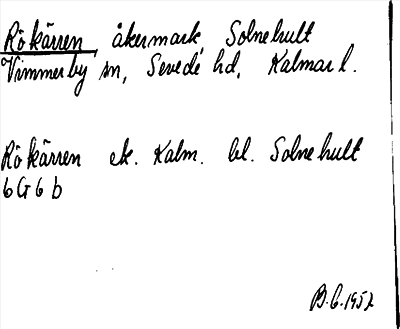 Rökärren, åkermark, Solnehult
Vimmerby sn, Sevede hd, Kalmar l.
Rökärren ek. Kalm. bl. Solnehult
6G6b
B.G. 1957